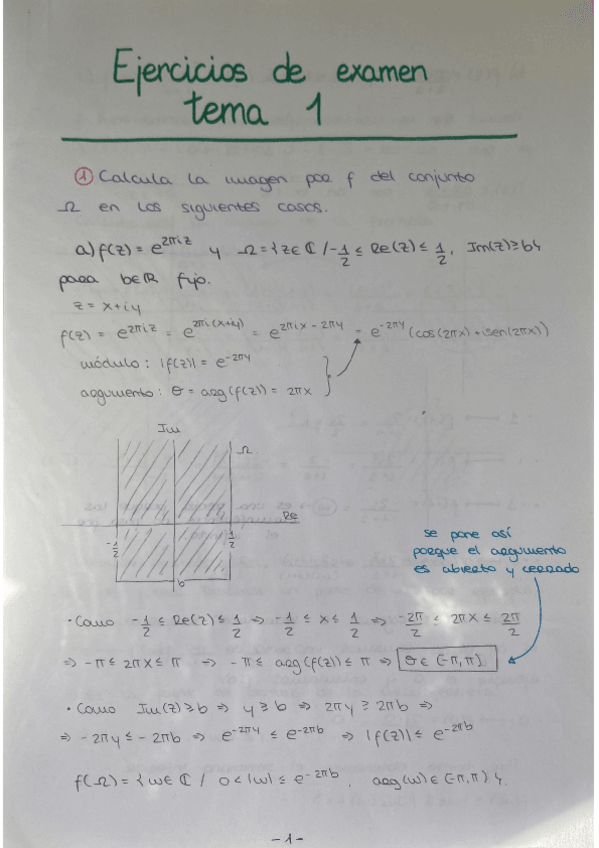 Ejercicios de examen
tema 1
① Calcula la imagen por f del conjunto
Ω en los siguientes casos.
a) f(z) = e^{2πiz} y Ω = {z ∈ ℂ / -1/2 ≤ Re(z) ≤ 1/2, Im(z) ≥ b}
para b∈ℝ fijo.
z = x+iy
f(z) = e^{2πiz} = e^{2πi(x+iy)} = e^{2πix - 2πy} = e^{-2πy} (cos(2πx) + isen(2πx))
módulo: |f(z)| = e^{-2πy}
argumento: θ = arg(f(z)) = 2πx
Im
Ω
Re
-1/2
1/2
b
se pone así
porque el argumento
es abierto y cerrado
· Como -1/2 ≤ Re(z) ≤ 1/2 ⇒ -1/2 ≤ x ≤ 1/2 ⇒ -2π/2 ≤ 2πx ≤ 2π/2
⇒ -π ≤ 2πx ≤ π ⇒ -π ≤ arg(f(z)) ≤ π ⇒ θ ∈ (-π, π]
· Como Im(z) ≥ b ⇒ y ≥ b ⇒ 2πy ≥ 2πb ⇒
⇒ -2πy ≤ -2πb ⇒ e^{-2πy} ≤ e^{-2πb} ⇒ |f(z)| ≤ e^{-2πb}
f(Ω) = {w ∈ ℂ / 0 < |w| ≤ e^{-2πb}, arg(w) ∈ (-π, π)}.
-1-